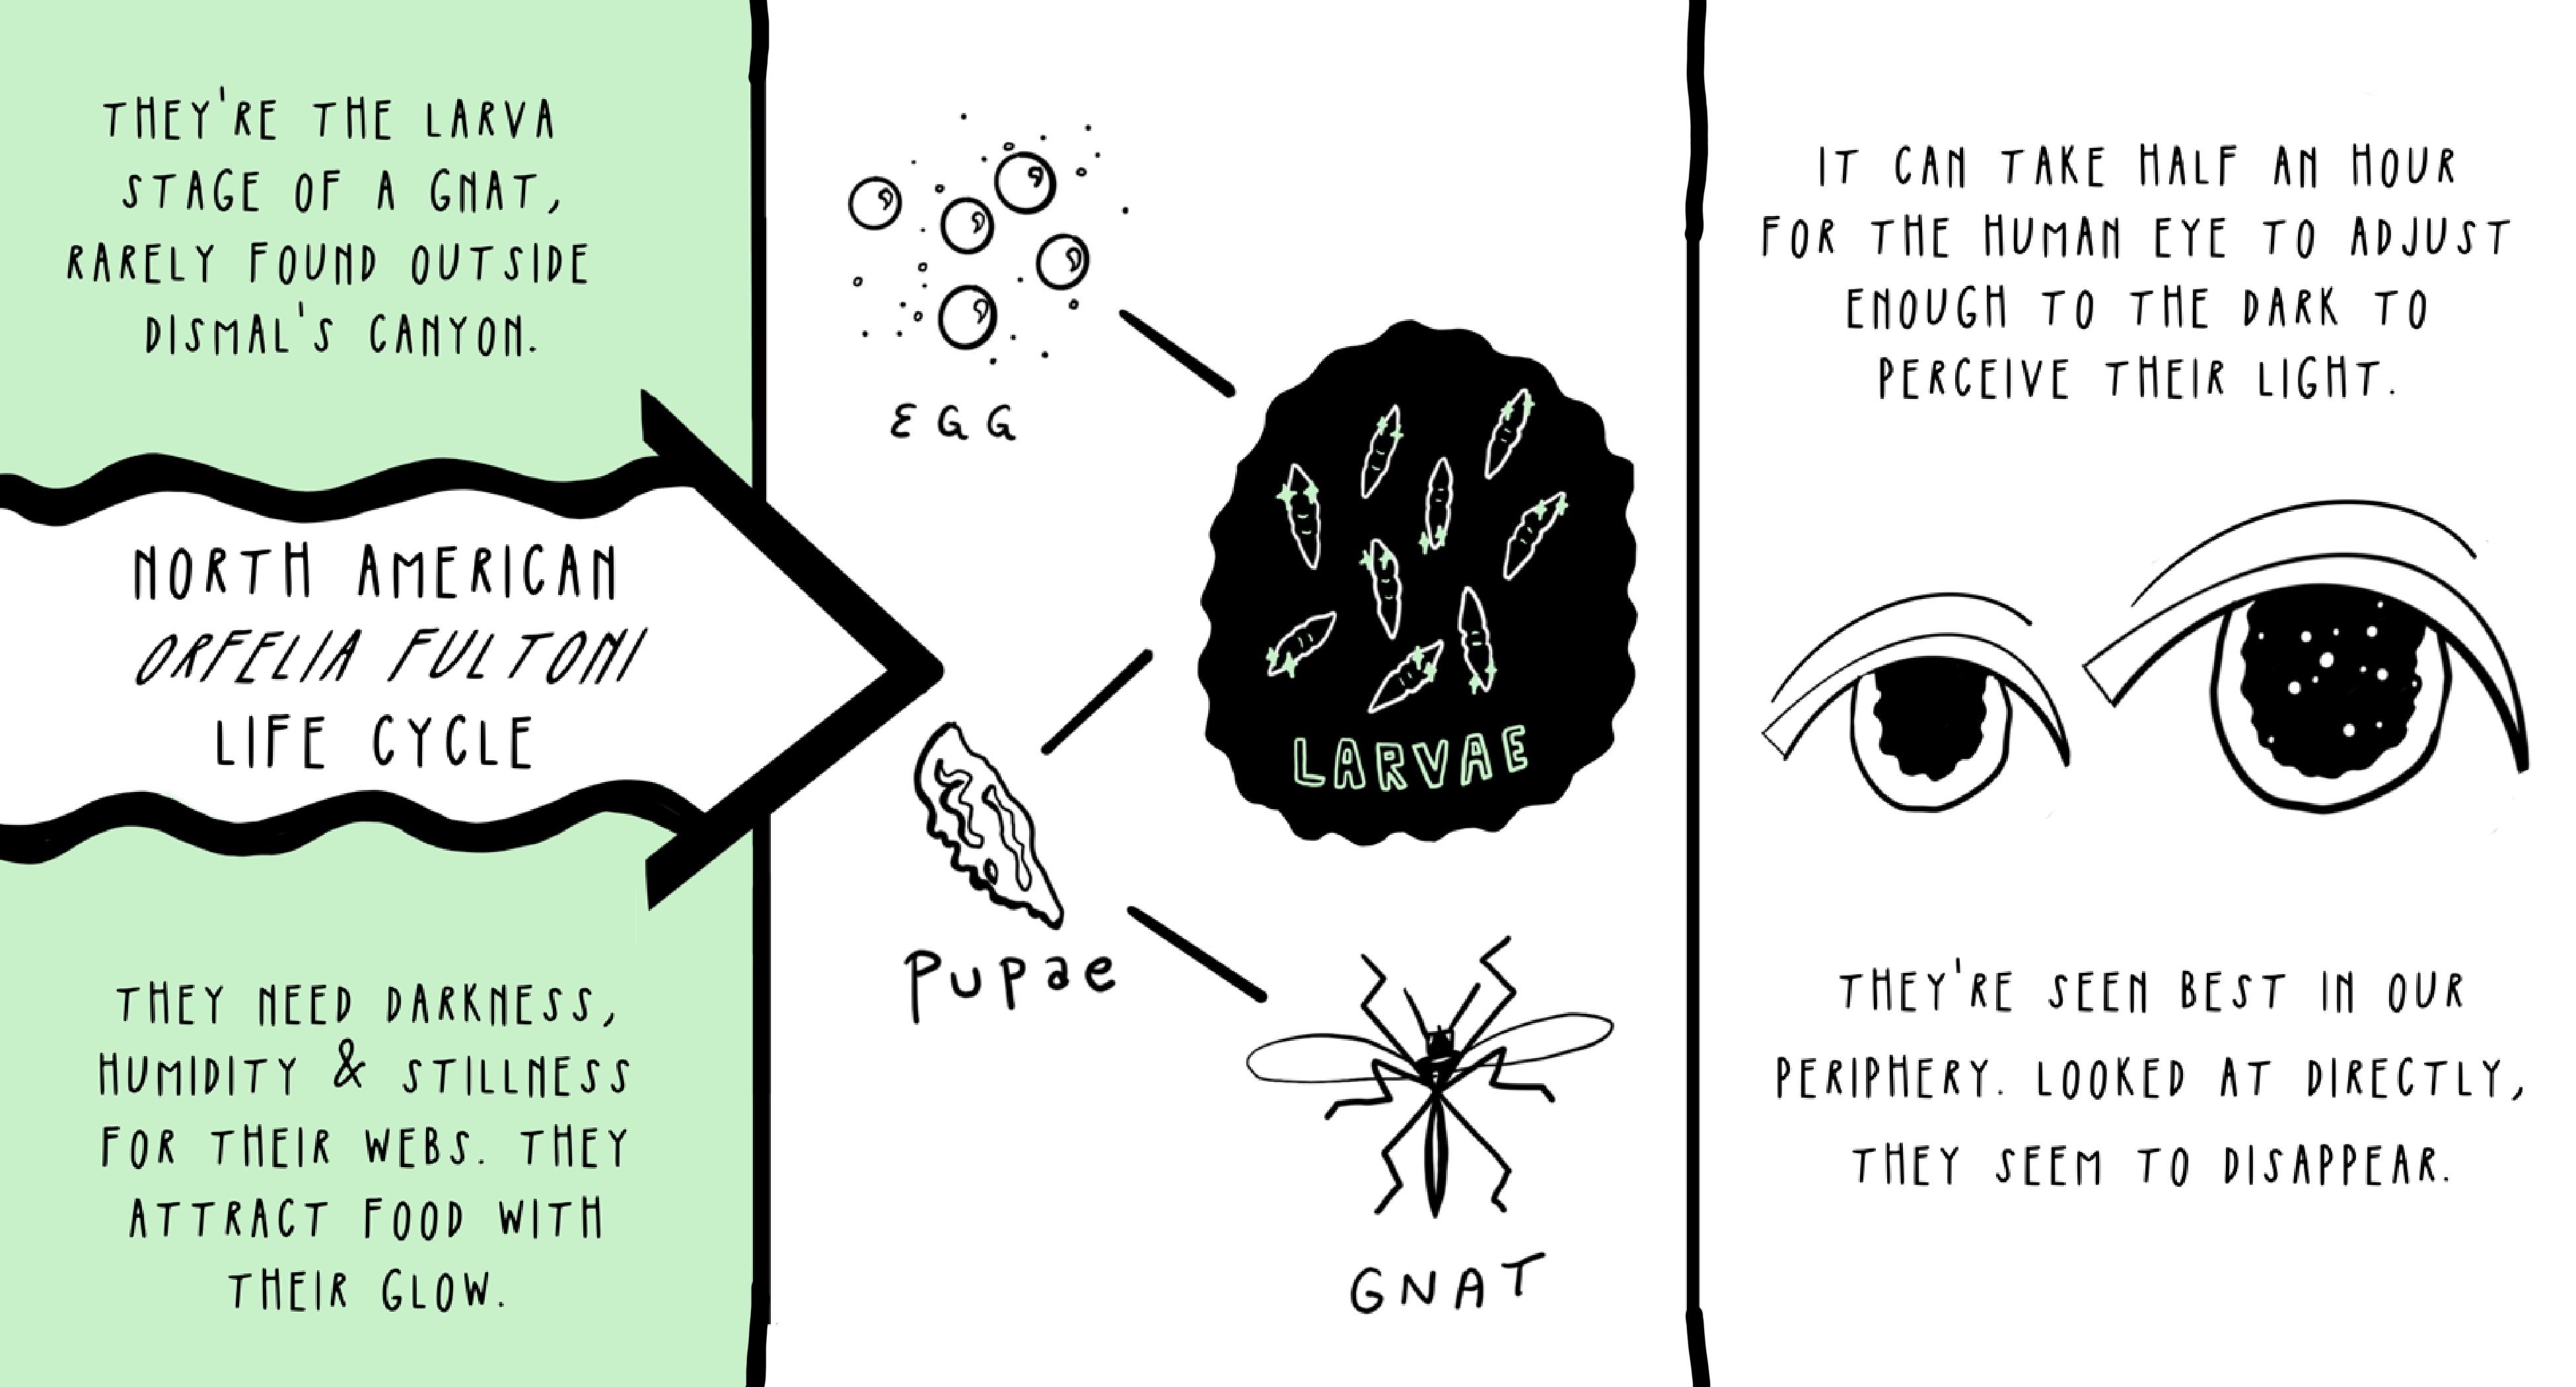 THEY'RE THE LARVA
STAGE OF A GNAT,
RARELY FOUND OUTSIDE
DISMAL'S CANYON.
NORTH AMERICAN
ORFELIA FULTONI
LIFE CYCLE
THEY NEED DARKNESS,
HUMIDITY & STILLNESS
FOR THEIR WEBS. THEY
ATTRACT FOOD WITH
THEIR GLOW.
EGG
LARVAE
Pupae
GNAT
IT CAN TAKE HALF AN HOUR
FOR THE HUMAN EYE TO ADJUST
ENOUGH TO THE DARK TO
PERCEIVE THEIR LIGHT.
THEY'RE SEEN BEST IN OUR
PERIPHERY. LOOKED AT DIRECTLY,
THEY SEEM TO DISAPPEAR.